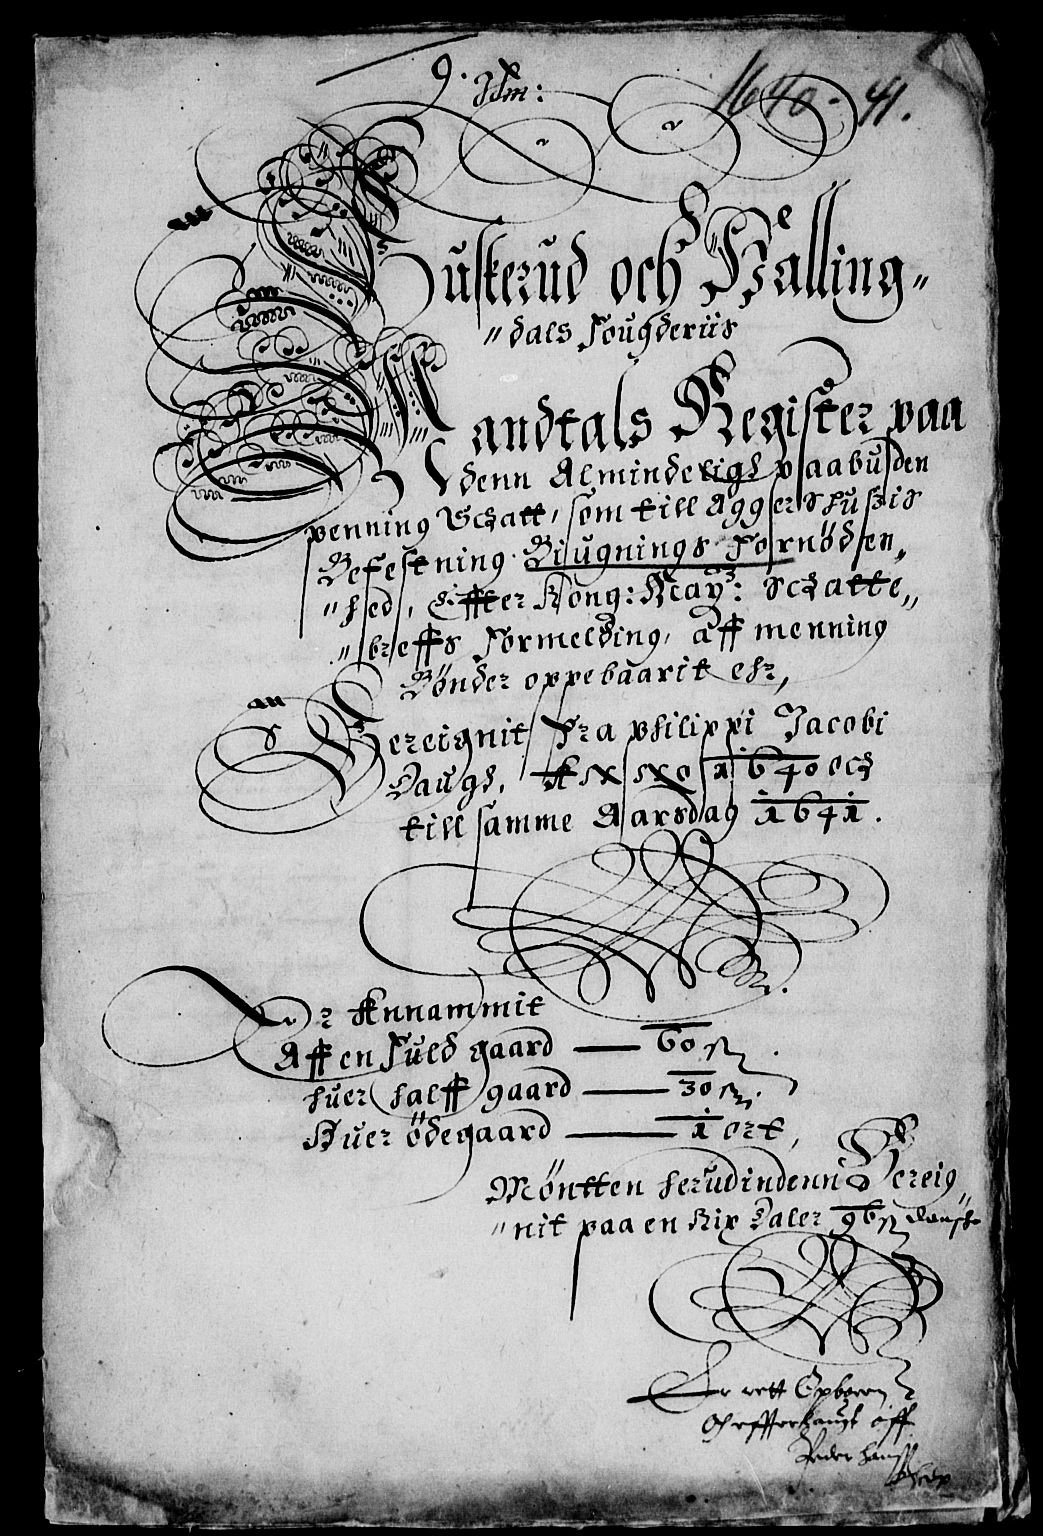 9.
1640-41.
Buskerud och Halling„
„dals Fougderiis
Mandtals Register paa
denn Almindeligh paabuden
penning Schatt, som till Aggershusis
Befestning Biugnings Fornøden„
„hed, Effter Kong: May: Schatte„
„breffs Formelding, aff menning
Bønder oppebaarit ehr,
Bereignit Fra Philippi Jacobi
Daugh, 1640 och
till samme Aarsdag 1641.
Er Annammit
Aff en Fuld gaard — 60 ß.
huer halff gaard — 30 ß.
Huer ødegaard — 1 ort,
Møntten herudindenn Bereig„
„nit paa en Rix Daler 96 ß danske
Er rett
aff
Peder